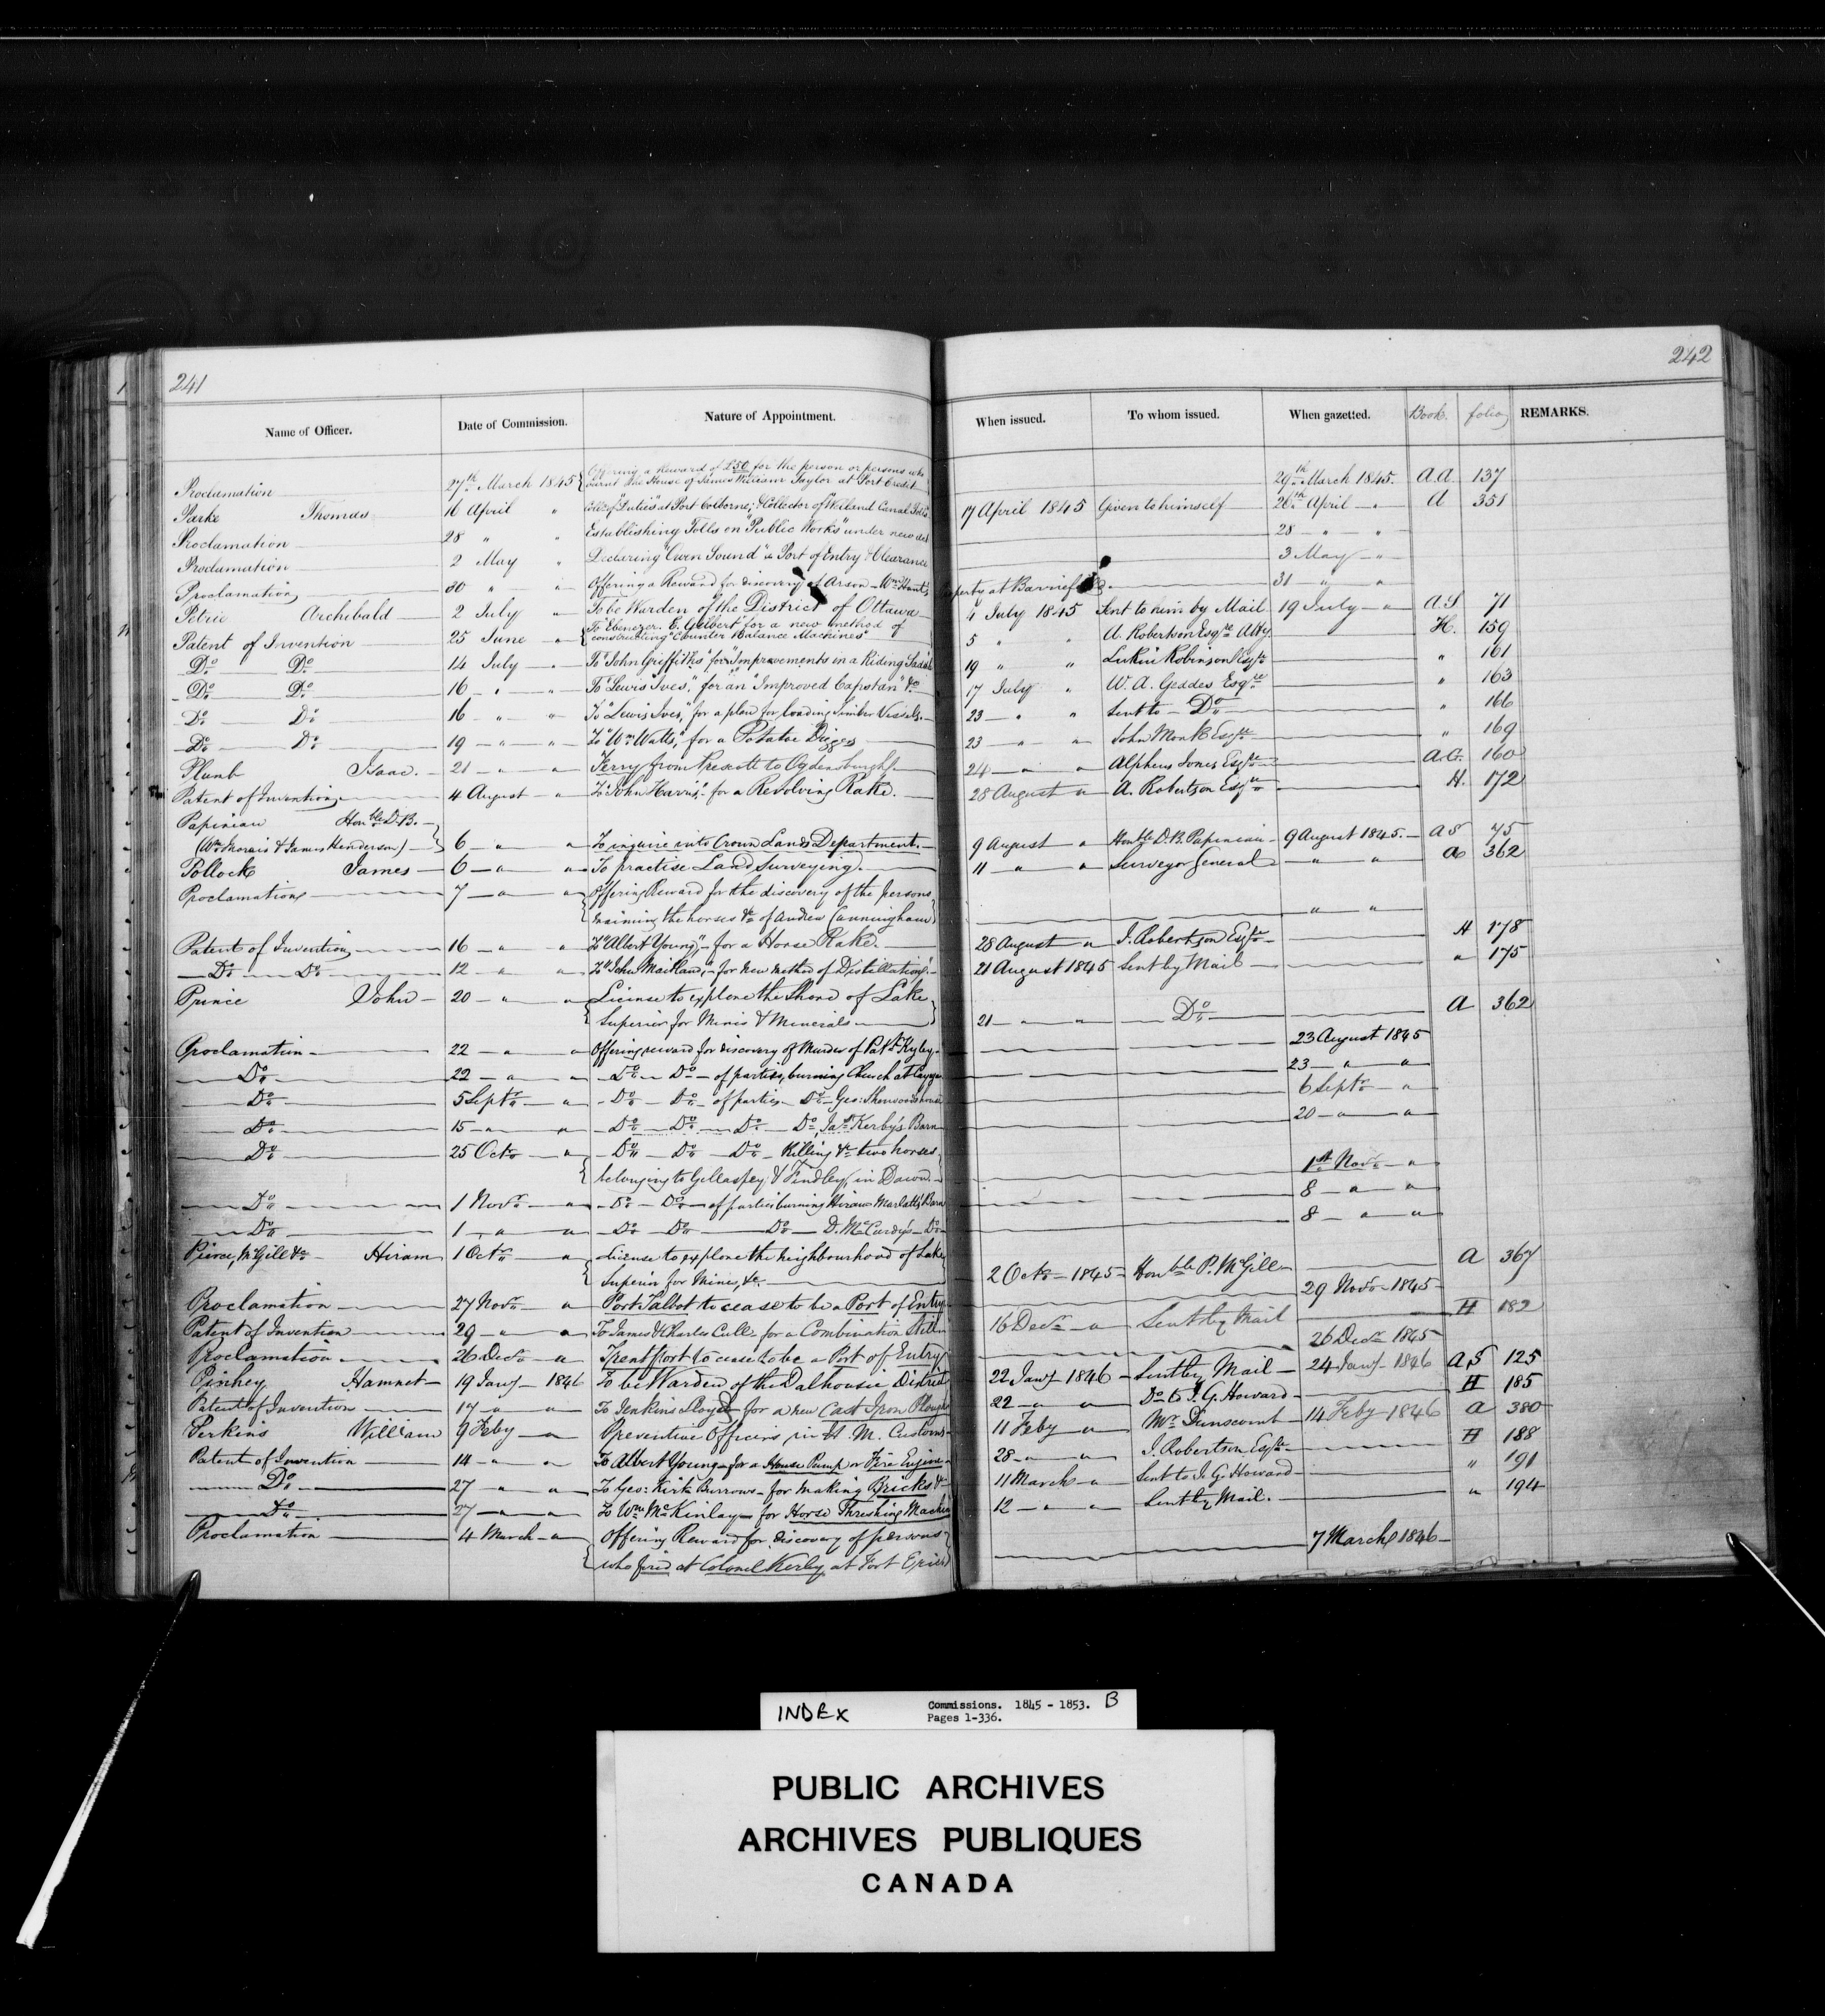 241
242
Name of Officer. Date of Commission. Nature of Appointment. When issued. To whom issued. When gazetted. Book. folio REMARKS.
Proclamation 27th March 1845 Offering a Reward of £50 for the person or persons who
burnt the House of James William Taylor at Port Credit 29th March 1845. A.A. 137
Parke Thomas 16 April " Collr of "Duties" at Port Colborne; & Collector of Welland Canal Tolls 17 April 1845 Given to himself 26th April " A 351
Proclamation 28 " " Establishing Tolls on "Public Works" under new act 28 " "
Proclamation 2 May " Declaring "Owen Sound" a Port of Entry & Clearance 3 May "
Proclamation 30 " " Offering a Reward for discovery of Arson - Wm Hunt's property at Barriefield. 31 " "
Petrie Archibald 2 July " To be Warden of the District of Ottawa 4 July 1845 Sent to him by Mail 19 July " A.S 71
Patent of Invention 25 June " To "Ebenezer E. Gilbert" for a new method of
constructing "Counter Balance Machines" 5 " " A. Robertson Esqre Atty H. 159
Do Do 14 July " To "John Griffiths", for "Improvements in a Riding Saddle 19 " " Lukin Robinson Esqre " 161
Do Do 16 " " To "Lewis Ives," for an "Improved Capstan" &c 17 July " W. A. Geddes Esqre " 163
Do Do 16 " " To "Lewis Ives," for a plan for loading Timber Vessels. 23 " " Sent to Do " 166
Do Do 19 " " To "Wm Watts," for a Potatoe Digger 23 " " John Monk Esqre " 169
Plumb Isaac. 21 " " Ferry from Prescott to Ogdensburgh 24 " " Alpheus Jones Esqre A.G. 160
Patent of Invention 4 August " To "John Harris," for a Revolving Rake. 28 August " A. Robertson Esqre H. 172
Papinian Honble D.B.
(Wm Morris & James Henderson) 6 " " To inquire into Crown Lands Department. 9 August " Honble D.B. Papineau 9 August 1845. A S 75
Pollock James 6 " " To practise Land Surveying. 11 " " Surveyor General " " A 362
Proclamation 7 " " Offering Reward for the discovery of the persons
maiming the horses &c of Andrew Cunningham " "
Patent of Invention 16 " " To "Albert Young," for a Horse Rake. 28 August " J. Robertson Esqre H 178
Do Do 12 " " To "John Maitland," for new method of Distillation. 21 August 1845 Sent by Mail " 175
Prince John 20 " " License to explore the Shore of Lake
Superior for Mines & Minerals 21 " " Do A 362
Proclamation 22 " " Offering reward for discovery of Murder of Patk Kyley 23 August 1845
Do 22 " " Do Do of parties, burning Church at Cayuga 23 " "
Do 5 Septr " Do Do of parties Do Geo: house 6 Septr "
Do 15 " " Do Do Do Do Jas Kerby's Barn 20 " "
Do 25 Octr " Do Do Do Killing &c two horses
belonging to Gillaspey & Findley, in Dawn 1st Novr "
Do 1 Novr " Do Do of parties burning Hiram Marlatt's Barn 8 " "
Do 1 " " Do Do Do D. McCurdy's Do 8 " "
Pierce, McGill &c Hiram 1 Octr " License to explore the neighbourhood of Lake
Superior for Mines, &c. 2 Octr 1845 Honble P. McGill A 367
Proclamation 27 Novr " Port Talbot to cease to be a Port of Entry 29 Novr 1845
Patent of Invention 29 " " To James & Charles Cull, for a Combination Still 16 Decr " Sent by Mail H 182
Proclamation 26 Decr " Trent Port to cease to be a Port of Entry 26 Decr 1845
Pinhey Hamnet 19 Jany 1846 To be Warden of the Dalhousie District 22 Jany 1846 Sent by Mail 24 Jany 1846 A S 125
Patent of Invention 17 " " To Jenkins Lloyd for a new Cast Iron Plough 22 " " Do to J. G. Howard H 185
Perkins William 9 Feby " Preventive Officer in H. M. Customs 11 Feby " Mr Dunscomb 14 Feby 1846 A 380
Patent of Invention 14 " " To Albert Young for a House Pump or Fire Engine 28 " " J. Robertson Esqre H 188
Do 27 " " To Geo: Kirk Burrows for making Bricks &c 11 March " Sent to J. G. Howard " 191
Do 27 " " To Wm McKinlay for Horse Threshing Machine 12 " " Sent by Mail. " 194
Proclamation 4 March " Offering Reward for discovery of persons
who fired at Colonel Kerby, at Fort Erie 7 March 1846
INDEX Commissions. 1845 - 1853. B
Pages 1-336.
PUBLIC ARCHIVES
ARCHIVES PUBLIQUES
CANADA